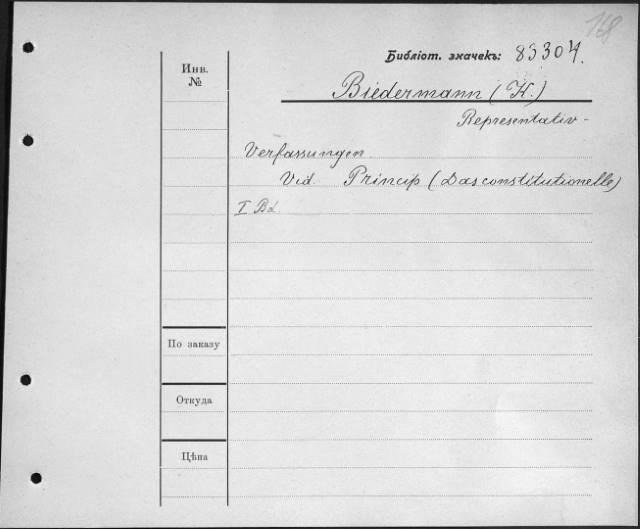 168
Библіот. значекъ: 83304.
Инв.
№
Biedermann (K.)
Representativ-
Verfassungen.
Vid. Princip (Das constitutionelle)
I Bd.
По заказу
Откуда
Цѣна